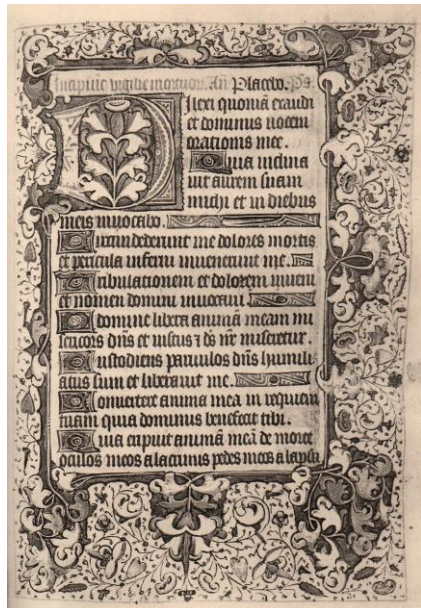 Incipiūt vigilie mortuor. An̄ Placebo. Ps.
Dilexi quoniā exaudi
et dominus uocem
orationis mee.
Quia inclina
uit aurem suam
michi et in diebus
meis inuocabo.
Circundederunt me dolores mortis
et pericula inferni inuenerunt me.
Tribulationem et dolorem inueni
et nomen domini inuocaui.
O domine libera animā meam mi
sericors dn̄s et iustus ⁊ ds̄ nr̄ miseretur.
Custodiens paruulos dn̄s humili
atus sum et liberauit me.
Conuertere anima mea in requiem
tuam quia dominus benefecit tibi.
Quia eripuit animā meā de morte
oculos meos a lacrimis pedes meos a lapsu